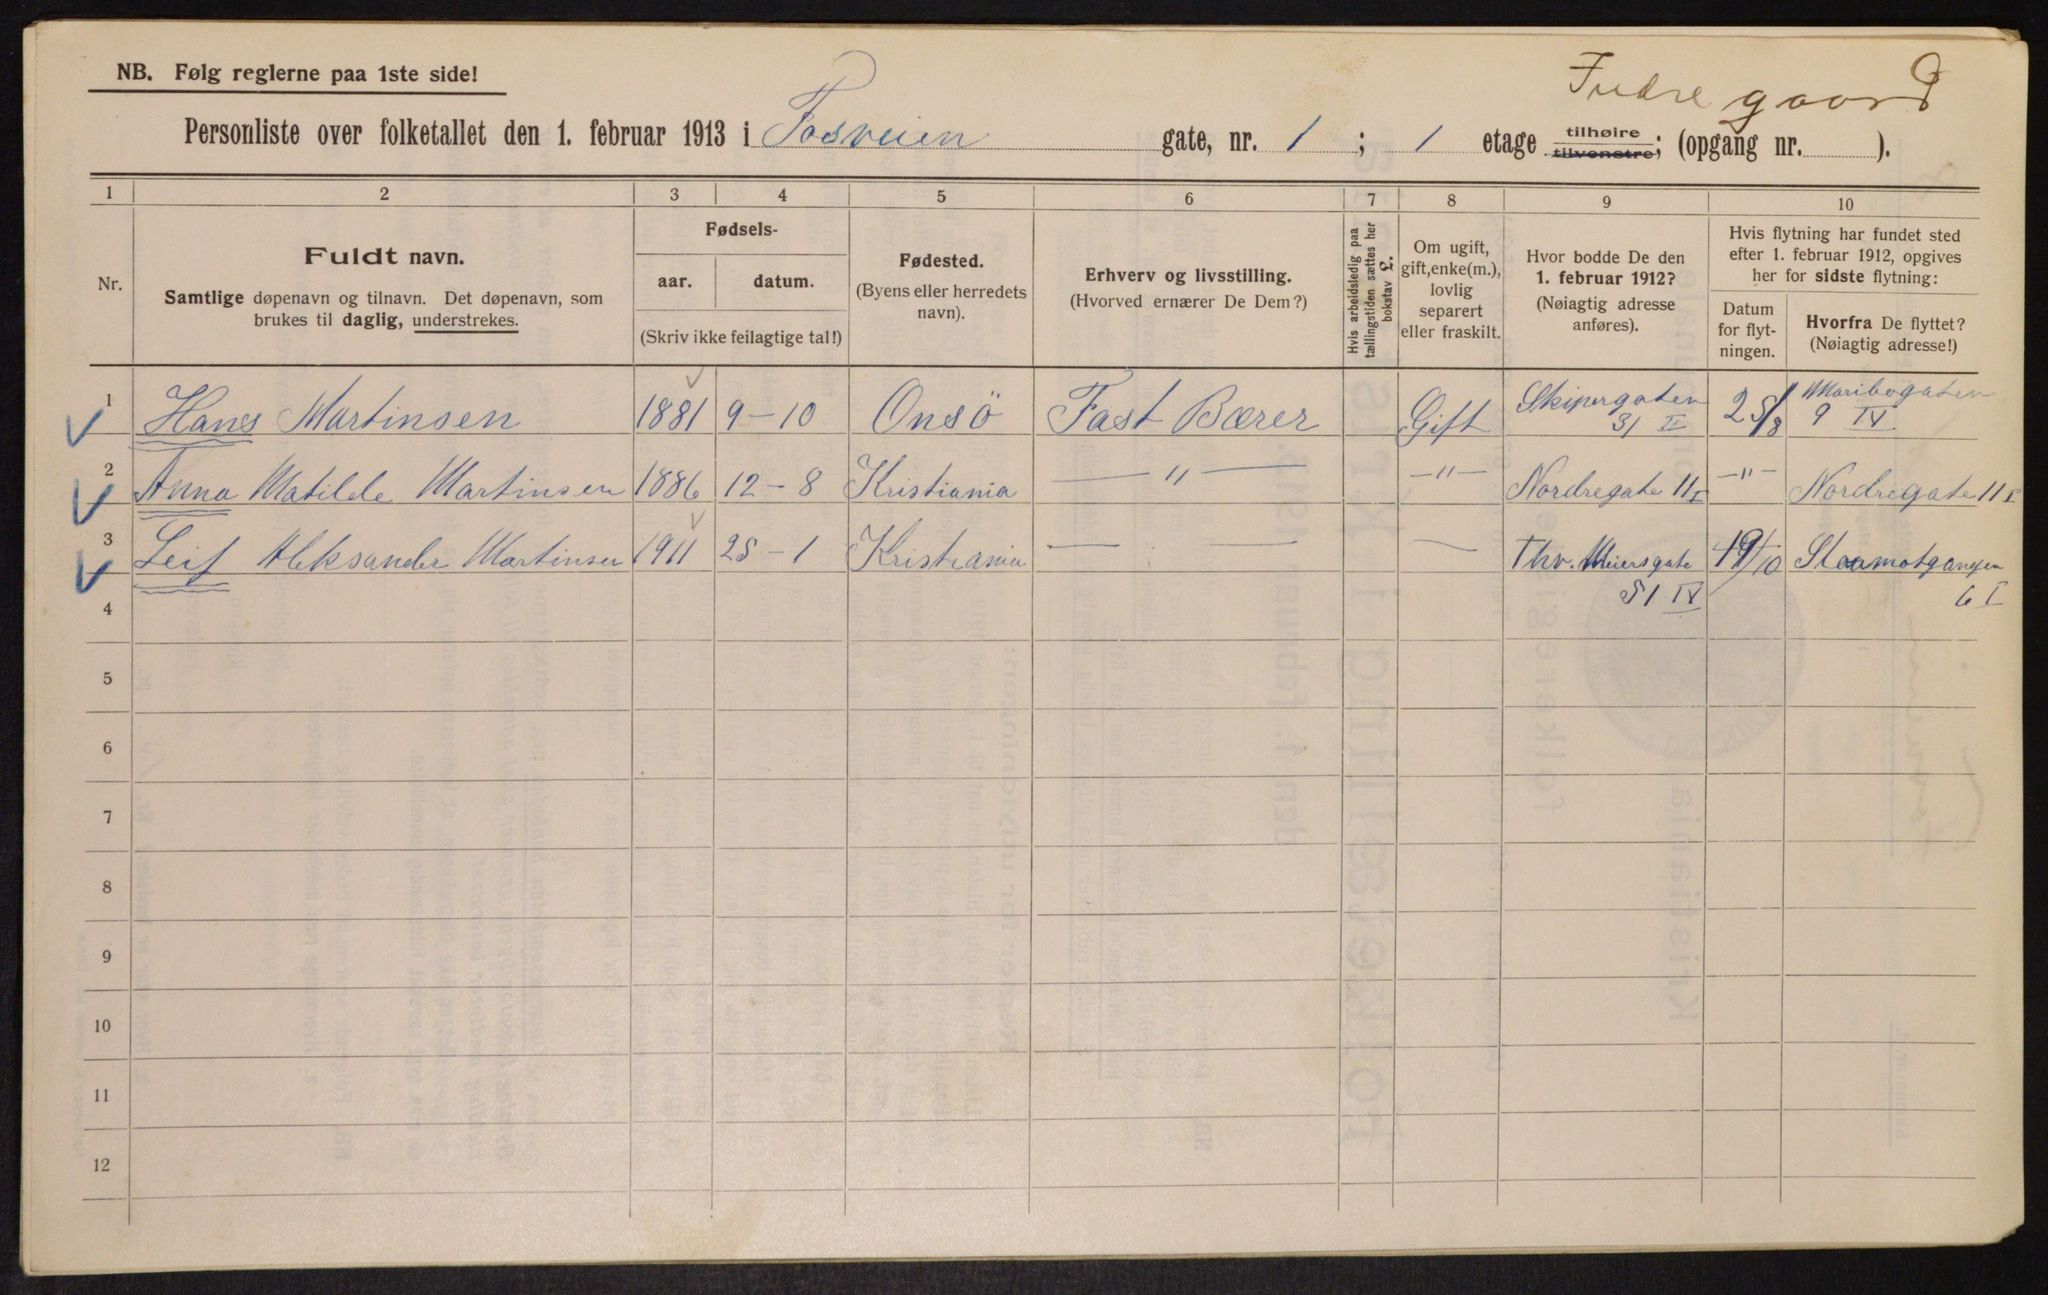 NB. Følg reglerne paa 1ste side!
Indregaard
Personliste over folketallet den 1. februar 1913 i Fosveien gate, nr. 1 ; 1 etage tilhøire tilvenstre; (opgang nr. ).
1 2 3 4 5 6 7 8 9 10
Nr.
Fuldt navn.
Samtlige døpenavn og tilnavn. Det døpenavn, som
brukes til daglig, understrekes.
Fødsels-
aar. datum.
(Skriv ikke feilagtige tal!)
Fødested.
(Byens eller herredets
navn).
Erhverv og livsstilling.
(Hvorved ernærer De Dem?)
Hvis arbeidsledig paa
tællingstiden sættes her
bokstav L.
Om ugift,
gift, enke(m.),
lovlig
separert
eller fraskilt.
Hvor bodde De den
1. februar 1912?
(Nøiagtig adresse
anføres).
Hvis flytning har fundet sted
efter 1. februar 1912, opgives
her for sidste flytning:
Datum
for flyt-
ningen.
Hvorfra De flyttet?
(Nøiagtig adresse!)
1 Hans Martinsen 1881 9-10 Onsö Fast Bærer Gift Skipergaten 31 II 25/8 Maribogaten 9 IV
2 Anna Matilde Martinsen 1886 12-8 Kristiania —"— —"— Nordregate 11 I —"— Nordregate 11 I
3 Leif Aleksander Martinsen 1911 25-1 Kristiania — — — Thv. Meiersgate 51 IV 19/10 6 I
4
5
6
7
8
9
10
11
12